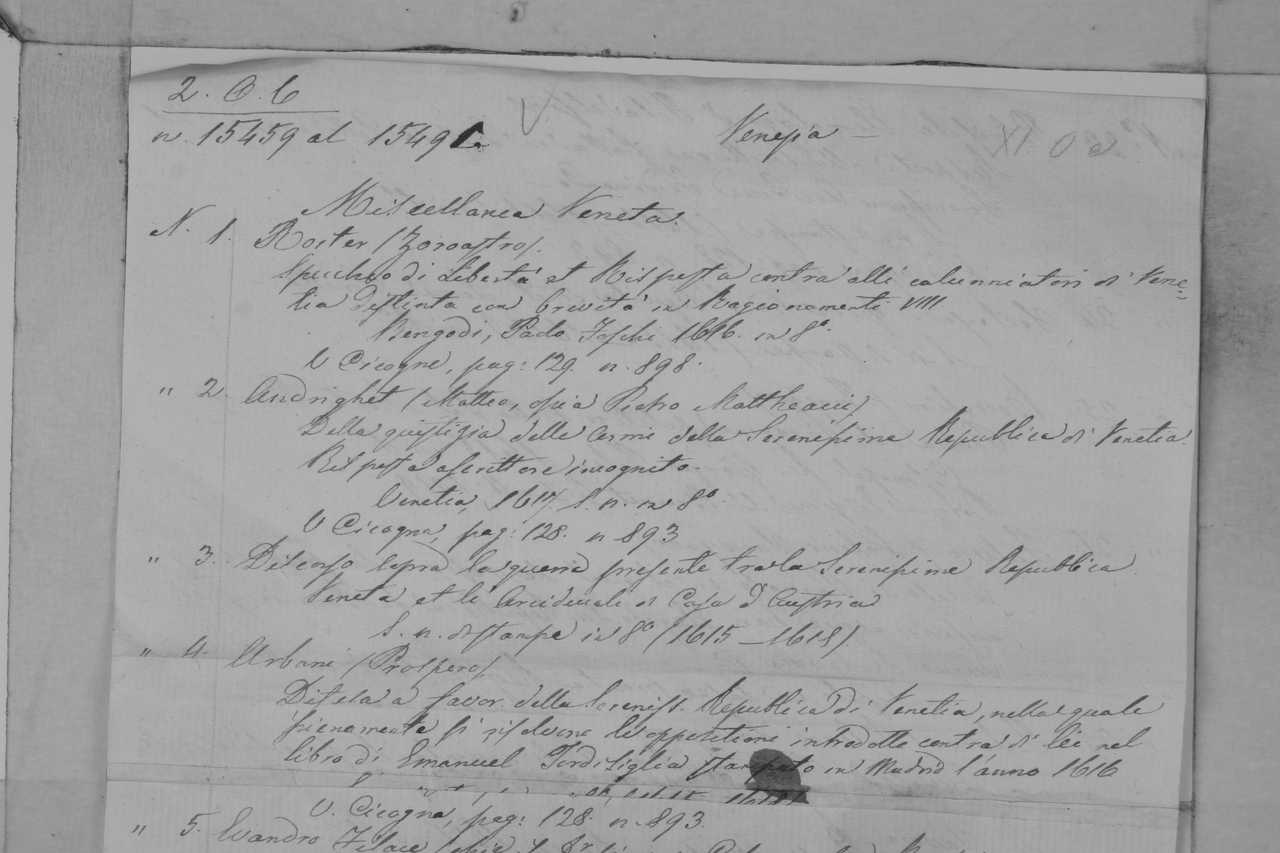 2. O. 6
n. 15459 al 1549
Venezia —
XI O
Miscellanea Veneta.
N. 1. Roster (Zoroastro).
Specchio di Libertà et Risposta contra alli calunniatori di Vene=
tia distinta con brevità in Ragionamenti VIII
Bengodi, Paolo 1616. in 8°.
V Cicogna, pag: 129. n. 898.
" 2. Andrighet (Matteo, ossia Pietro Mattheacci)
Della giustizia delle armi della Serenissima Republica di Venetia.
Risposta a scrittore incognito.
Venetia, 1617. S. n. in 8°.
V Cicogna, pag: 128. n 893
" 3. Discorso sopra la guerra presente tra la Serenissima Republica
Veneta et le Arciducale di Casa d'Austria
S. n. di stampa in 8° (1615–1618)
" 4. Urbani (Prospero)
Difesa a favor della Sereniss. Republica di Venetia, nella quale
pienamente si risolvono le oppositioni introdotte contra di lei nel
libro di Emanuel Tordisiglia stampato in Madrid l'anno 1616
V. Cicogna, pag: 128. n. 893.
" 5. Evandro